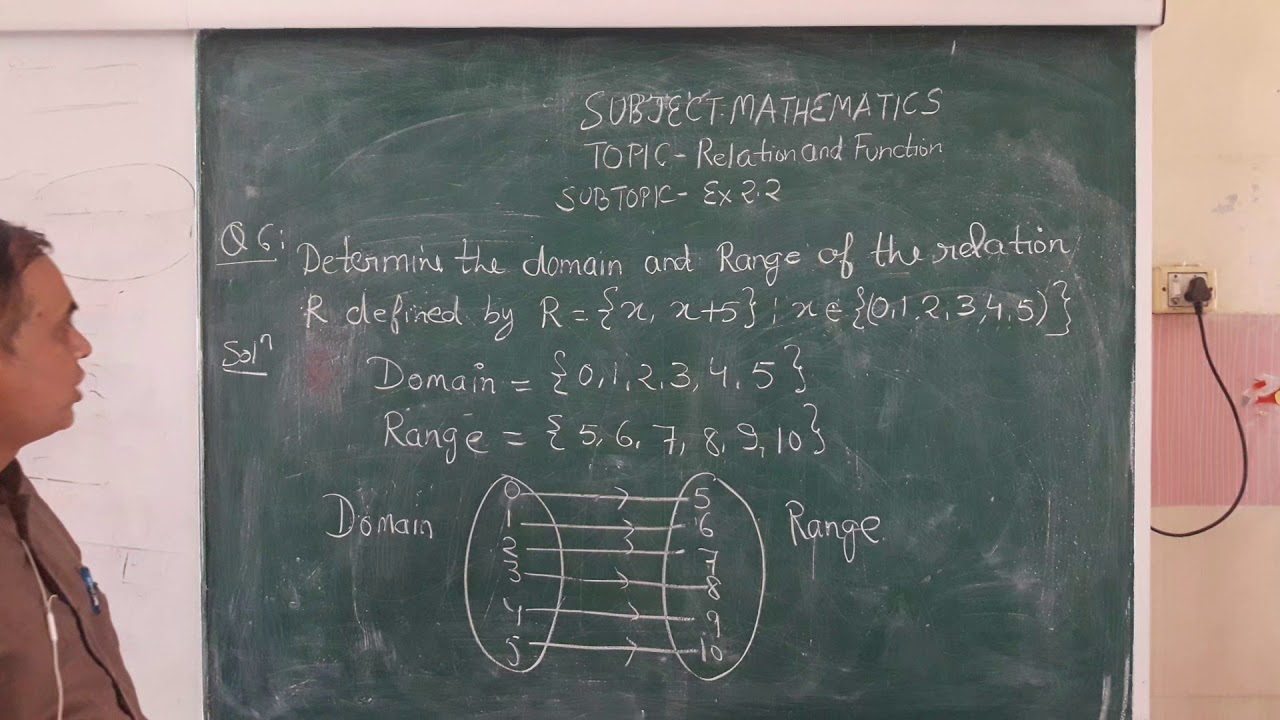 SUBJECT-MATHEMATICS
TOPIC - Relation and Function
SUBTOPIC - Ex 2.2
Q6: Determine the domain and Range of the relation
R defined by R = {x, x+5} ; x ∈ {(0,1,2,3,4,5)}
Solⁿ
Domain = {0,1,2,3,4,5}
Range = {5,6,7,8,9,10}
Domain
0 5
1 6
2 7
3 8
4 9
5 10
Range